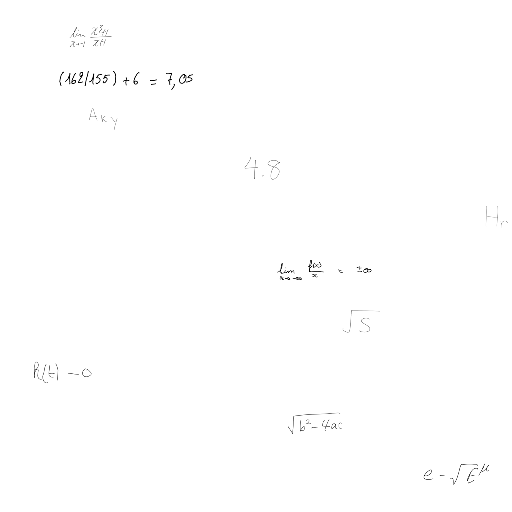 lim x→1 x²+1/x+1
(162/155) + 6 = 7,05
A_{ky}
4.8
H_n
lim x→-∞ f(x)/x = ±∞
√5
R(t) - 0
√b²-4ac
e - √E^μ